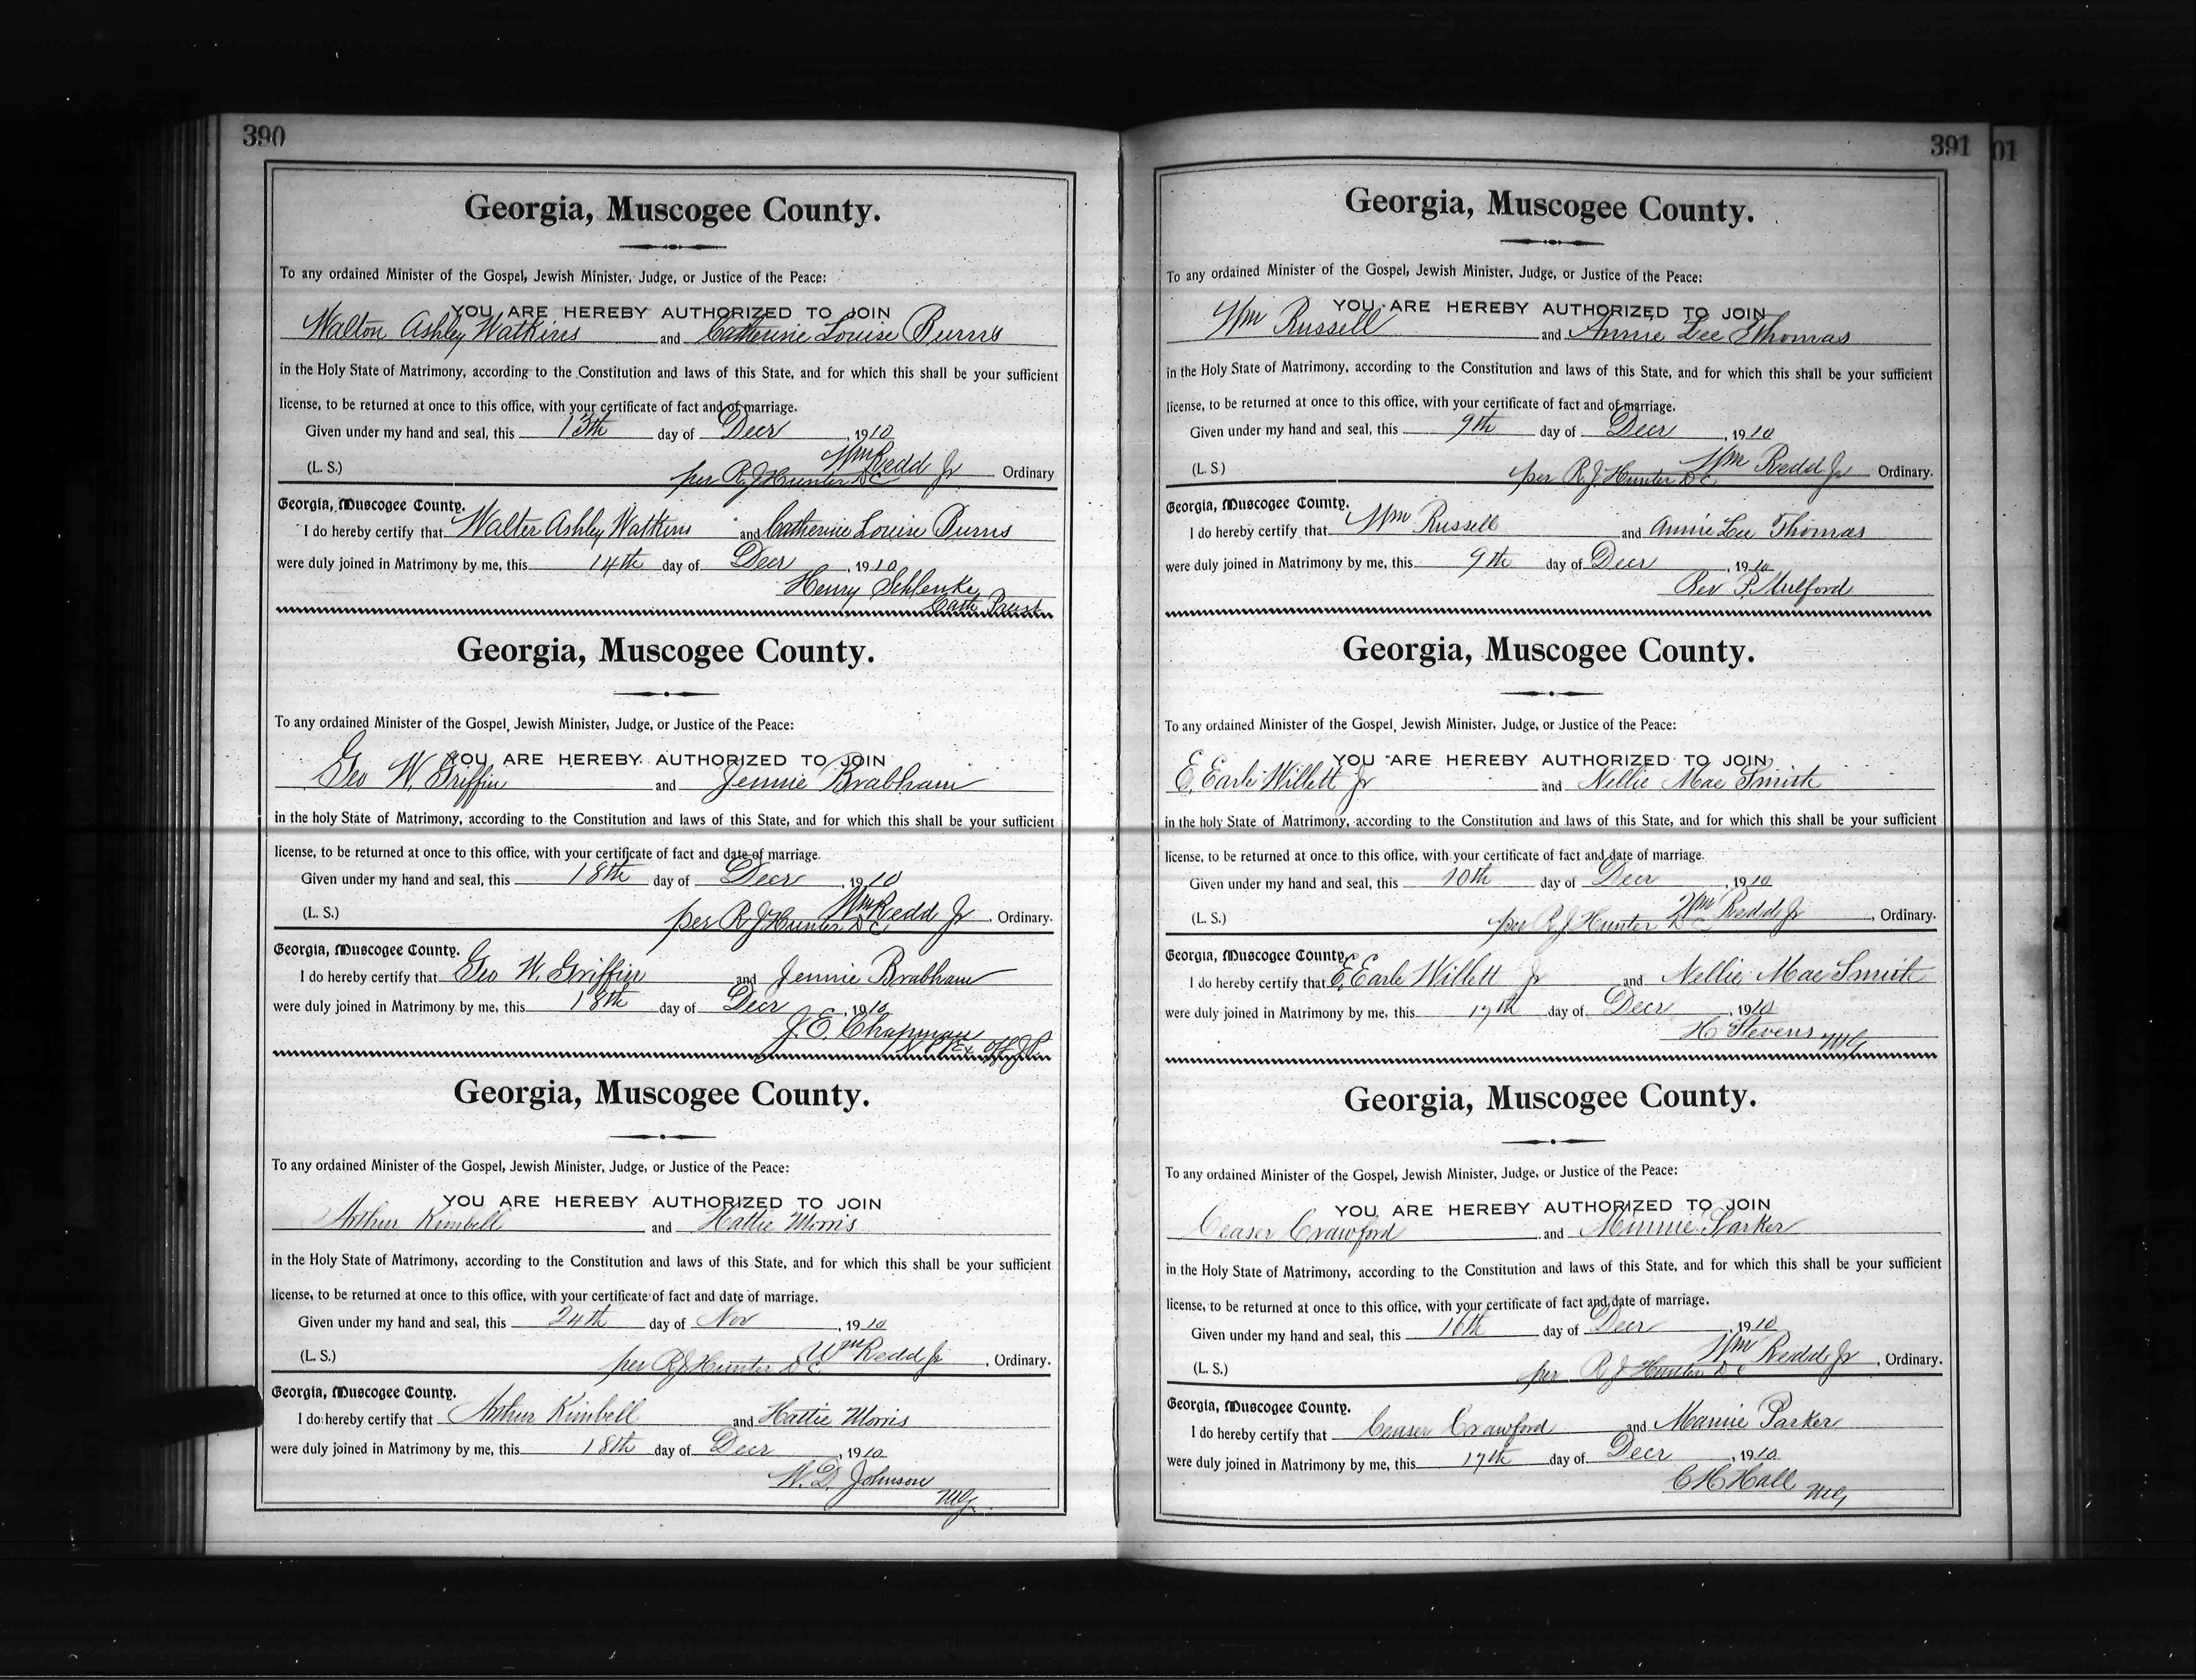 390
Georgia, Muscogee County.
To any ordained Minister of the Gospel, Jewish Minister, Judge, or Justice of the Peace:
YOU ARE HEREBY AUTHORIZED TO JOIN
Walton Ashley Watkins and Catherine Louise Burns
in the Holy State of Matrimony, according to the Constitution and laws of this State, and for which this shall be your sufficient
license, to be returned at once to this office, with your certificate of fact and of marriage.
Given under my hand and seal, this 13th day of Decr, 1910
Wm Redd Jr
(L. S.) per R J Hunter D C Ordinary
Georgia, Muscogee County.
I do hereby certify that Walter Ashley Watkins and Catherine Louise Burns
were duly joined in Matrimony by me, this 14th day of Decr, 1910
Henry Schlenke
Cath Priest
Georgia, Muscogee County.
To any ordained Minister of the Gospel, Jewish Minister, Judge, or Justice of the Peace:
YOU ARE HEREBY AUTHORIZED TO JOIN
Geo W. Griffin and Jennie Brabham
in the holy State of Matrimony, according to the Constitution and laws of this State, and for which this shall be your sufficient
license, to be returned at once to this office, with your certificate of fact and date of marriage.
Given under my hand and seal, this 18th day of Decr, 1910
Wm Redd Jr
(L. S.) per R J Hunter D C, Ordinary.
Georgia, Muscogee County.
I do hereby certify that Geo W. Griffin and Jennie Brabham
were duly joined in Matrimony by me, this 18th day of Decr, 1910
J. E. Chapman
N P & Ex Off J P
Georgia, Muscogee County.
To any ordained Minister of the Gospel, Jewish Minister, Judge, or Justice of the Peace:
YOU ARE HEREBY AUTHORIZED TO JOIN
Arthur Kimbell and Hattie Morris
in the Holy State of Matrimony, according to the Constitution and laws of this State, and for which this shall be your sufficient
license, to be returned at once to this office, with your certificate of fact and date of marriage.
Given under my hand and seal, this 24th day of Nov, 1910
Wm Redd Jr
(L. S.) per R J Hunter D C, Ordinary.
Georgia, Muscogee County.
I do hereby certify that Arthur Kimbell and Hattie Morris
were duly joined in Matrimony by me, this 18th day of Decr, 1910
W. D. Johnson
MG
391 01
Georgia, Muscogee County.
To any ordained Minister of the Gospel, Jewish Minister, Judge, or Justice of the Peace:
YOU ARE HEREBY AUTHORIZED TO JOIN
Wm Russell and Annie Lee Thomas
in the Holy State of Matrimony, according to the Constitution and laws of this State, and for which this shall be your sufficient
license, to be returned at once to this office, with your certificate of fact and of marriage.
Given under my hand and seal, this 9th day of Decr, 1910
Wm Redd Jr
(L. S.) per R J Hunter D C Ordinary.
Georgia, Muscogee County.
I do hereby certify that Wm Russell and Annie Lee Thomas
were duly joined in Matrimony by me, this 9th day of Decr, 1910
Rev P. Mulford
Georgia, Muscogee County.
To any ordained Minister of the Gospel, Jewish Minister, Judge, or Justice of the Peace:
YOU ARE HEREBY AUTHORIZED TO JOIN
E. Earle Willett Jr and Nellie Mae Smith
in the holy State of Matrimony, according to the Constitution and laws of this State, and for which this shall be your sufficient
license, to be returned at once to this office, with your certificate of fact and date of marriage.
Given under my hand and seal, this 10th day of Decr, 1910
Wm Redd Jr
(L. S.) per R J Hunter D C, Ordinary.
Georgia, Muscogee County.
I do hereby certify that E. Earle Willett Jr and Nellie Mae Smith
were duly joined in Matrimony by me, this 17th day of Decr, 1910
H Stevens MG
Georgia, Muscogee County.
To any ordained Minister of the Gospel, Jewish Minister, Judge, or Justice of the Peace:
YOU ARE HEREBY AUTHORIZED TO JOIN
Ceaser Crawford and Minnie Parker
in the Holy State of Matrimony, according to the Constitution and laws of this State, and for which this shall be your sufficient
license, to be returned at once to this office, with your certificate of fact and date of marriage.
Given under my hand and seal, this 16th day of Decr, 1910
Wm Redd Jr
(L. S.) per R J Hunter D C, Ordinary.
Georgia, Muscogee County.
I do hereby certify that Ceaser Crawford and Mannie Parker
were duly joined in Matrimony by me, this 17th day of Decr, 1910
C H Hall MG